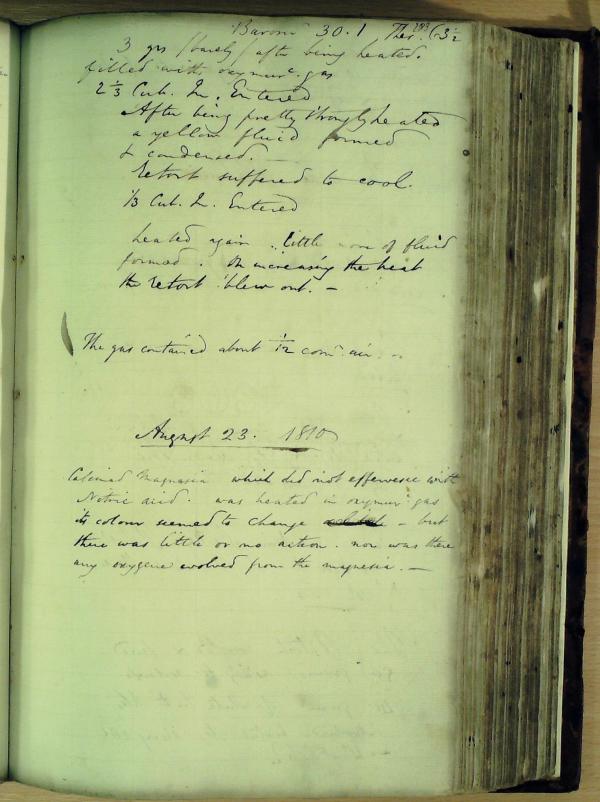 Barom^r 30.1 Ther. 63½
203
3 grs (barely) after being heated.
filled with oxymur^c. gas
2 ⅓ Cub. In. Entered
After being pretty strongly heated
a yellow fluid formed
& condensed. —
Retort suffered to cool.
⅓ Cub. In. Entered
heated again. little more of fluid
formed. On increasing the heat
the retort blew out. —
The gas contained about 1/12 com^n air. —
August 23. 1810
Calcined Magnesia which did not effervesce with
Nitric acid. was heated in oxymur^c gas
its colour seemed to change — but
there was little or no action. nor was there
any oxygene evolved from the magnesia. —